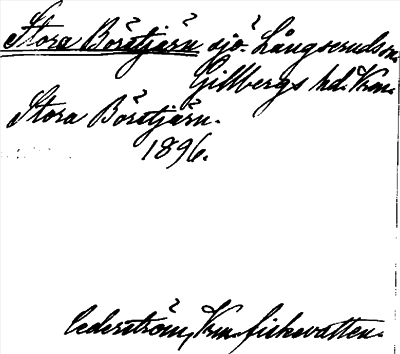 Stora Börstjärn sjö. Långseruds sn.
Gillbergs hd. Vrm.
Stora Börstjärn.
1896.
Cederström, Vrm. fiskevatten.